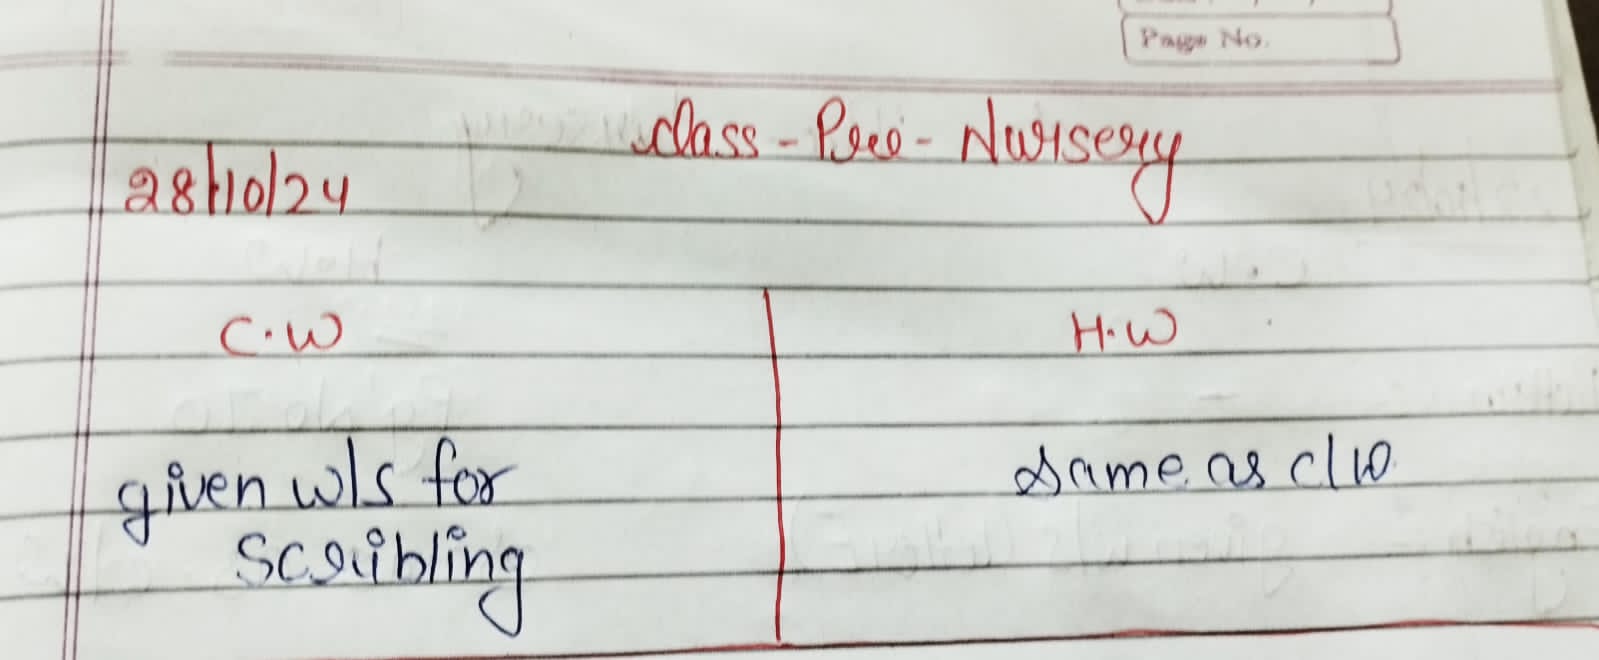 Page No.
Class - Pre - Nursery
28/10/24
C.W
H.W
given w/s for
Scribling
Same as c/w.